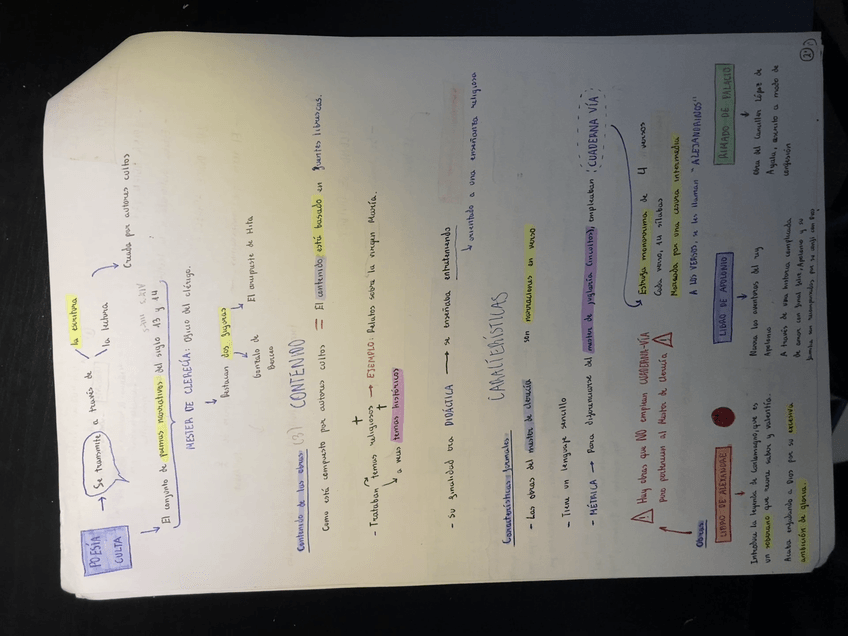 POESÍA CULTA
→ Se transmite a través de / la escritura
\ la lectura
Creada por autores cultos
El conjunto de poemas narrativos del siglo 13 y 14
s.XIII s.XIV
MESTER DE CLERECÍA: Oficio del clérigo.
Destacan dos figuras
Gonzalo de Berceo
El arcipreste de Hita
Contenido de las obras (3) CONTENIDO
Como está compuesto por autores cultos = El contenido está basado en fuentes librescas.
- Trataban temas religiosos → EJEMPLO: Relatos sobre la virgen María.
a veces temas históricos
- Su finalidad era DIDÁCTICA → se enseñaba entreteniendo
↓ orientado a una enseñanza religiosa
Características formales: CARACTERÍSTICAS
- Las obras del mester de clerecía son narraciones en verso
- Tiene un lenguaje sencillo
- MÉTRICA → Para diferenciarse del mester de juglaría (incultos), empleaban: CUADERNA VÍA
Estrofa monorrima de 4 versos
Cada verso, 14 sílabas
Marcada por una cesura intermedia
A LOS VERSOS, se les llaman "ALEJANDRINOS"
⚠ Hay obras que NO emplean CUADERNA-VÍA
pero pertenecen al Mester de Clerecía ⚠
Obras:
LIBRO DE ALEXANDRE
Introduce la leyenda de Carlomagno, que es
un visionario que reúne saber y valentía.
Acaba enfadando a Dios por su excesiva
ambición de gloria.
LIBRO DE APOLONIO
Narra las aventuras del rey
Apolonio
A través de una historia complicada
de amor con final feliz, Apolonio y su
familia son recompensados por su amor con Dios
RIMADO DE PALACIO
Obra del Canciller López de
Ayala, escrito a modo de
confesión
24